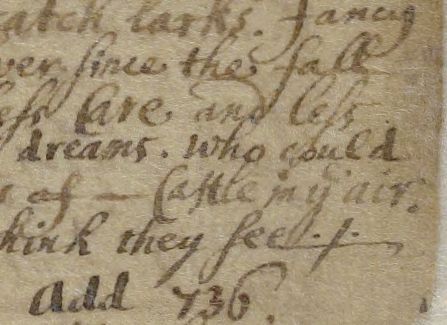 catch larks. fancy
ver since the fall
less Care and less
dreams. who could
s of — Castle in yͤ air.
think they see./.
Add 736.